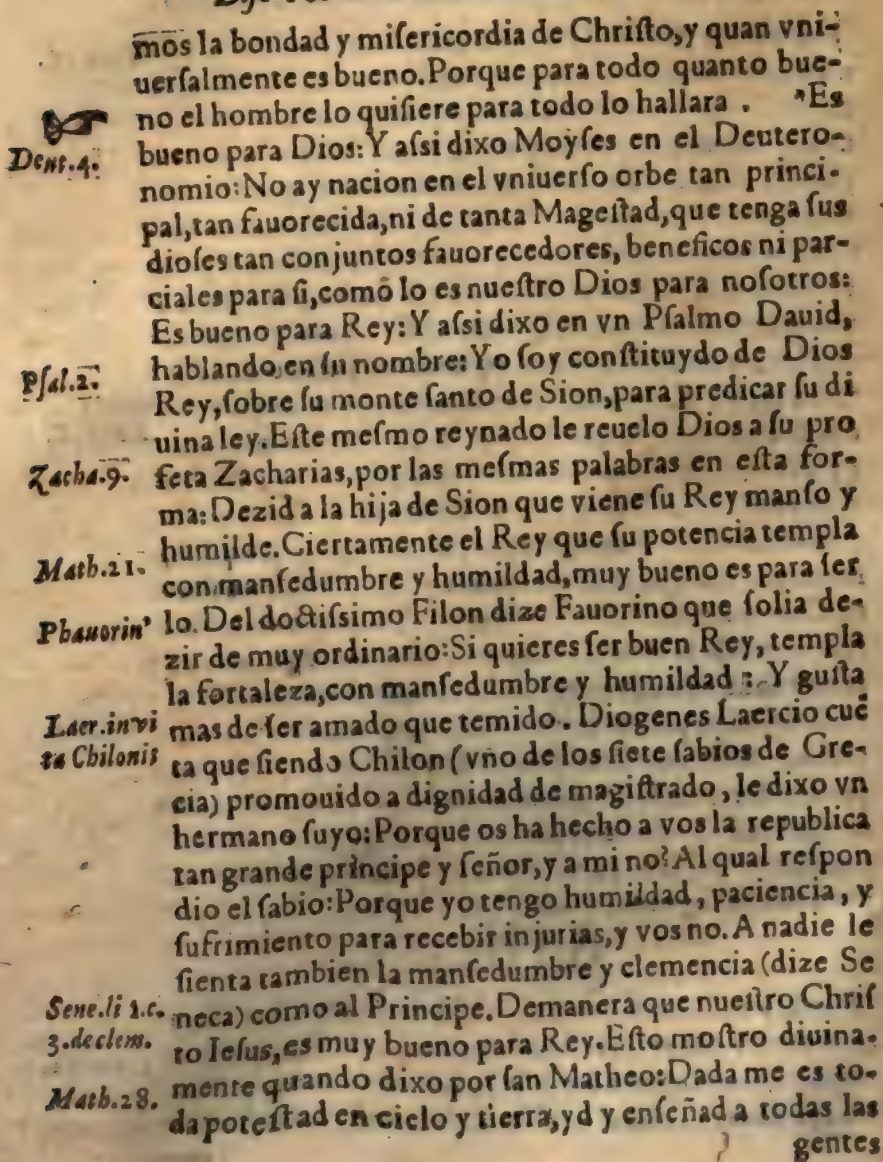 mos la bondad y miſericordia de Chriſto,y quan vni-
uerſalmente es bueno.Porque para todo quanto bue-
no el hombre lo quiſiere para todo lo hallara . *Es
Deut.4. bueno para Dios:Y aſsi dixo Moyſes en el Deutero-
nomio:No ay nacion en el vniuerſo orbe tan princi-
pal,tan fauorecida,ni de tanta Mageſtad,que tenga ſus
dioſes tan conjuntos fauorecedores, beneficos ni par-
ciales para ſi,como lo es nueſtro Dios para noſotros:
Es bueno para Rey:Y aſsi dixo en vn Pſalmo Dauid,
Pſal.2. hablando en ſu nombre:Yo ſoy conſtituydo de Dios
Rey,ſobre ſu monte ſanto de Sion,para predicar ſu di
uina ley.Eſte meſmo reynado le reuelo Dios a ſu pro
Zacha.9. feta Zacharias,por las meſmas palabras en eſta for-
ma:Dezid a la hija de Sion que viene ſu Rey manſo y
Math.21. humilde.Ciertamente el Rey que ſu potencia templa
con manſedumbre y humildad,muy bueno es para ſer
Phauorin' lo. Del doctiſsimo Filon dize Fauorino que ſolia de-
zir de muy ordinario:Si quieres ſer buen Rey, templa
la fortaleza,con manſedumbre y humildad : Y guſta
Laer.in vi mas de ſer amado que temido . Diogenes Laercio cuē
ta Chilonis ta que ſiendo Chilon (vno de los ſiete ſabios de Gre-
cia) promouido a dignidad de magiſtrado , le dixo vn
hermano ſuyo:Porque os ha hecho a vos la republica
tan grande principe y ſeñor,y a mi no?Al qual reſpon
dio el ſabio:Porque yo tengo humildad , paciencia , y
ſufrimiento para recebir injurias,y vos no. A nadie le
ſienta tambien la manſedumbre y clemencia (dize Se
Sene.li 1.c. neca) como al Principe.Demanera que nueſtro Chriſ
3.de clem. to Ieſus,es muy bueno para Rey.Eſto moſtro diuina-
Math.28. mente quando dixo por ſan Matheo:Dada me es to-
da poteſtad en cielo y tierra,yd y enſeñad a todas las
gentes